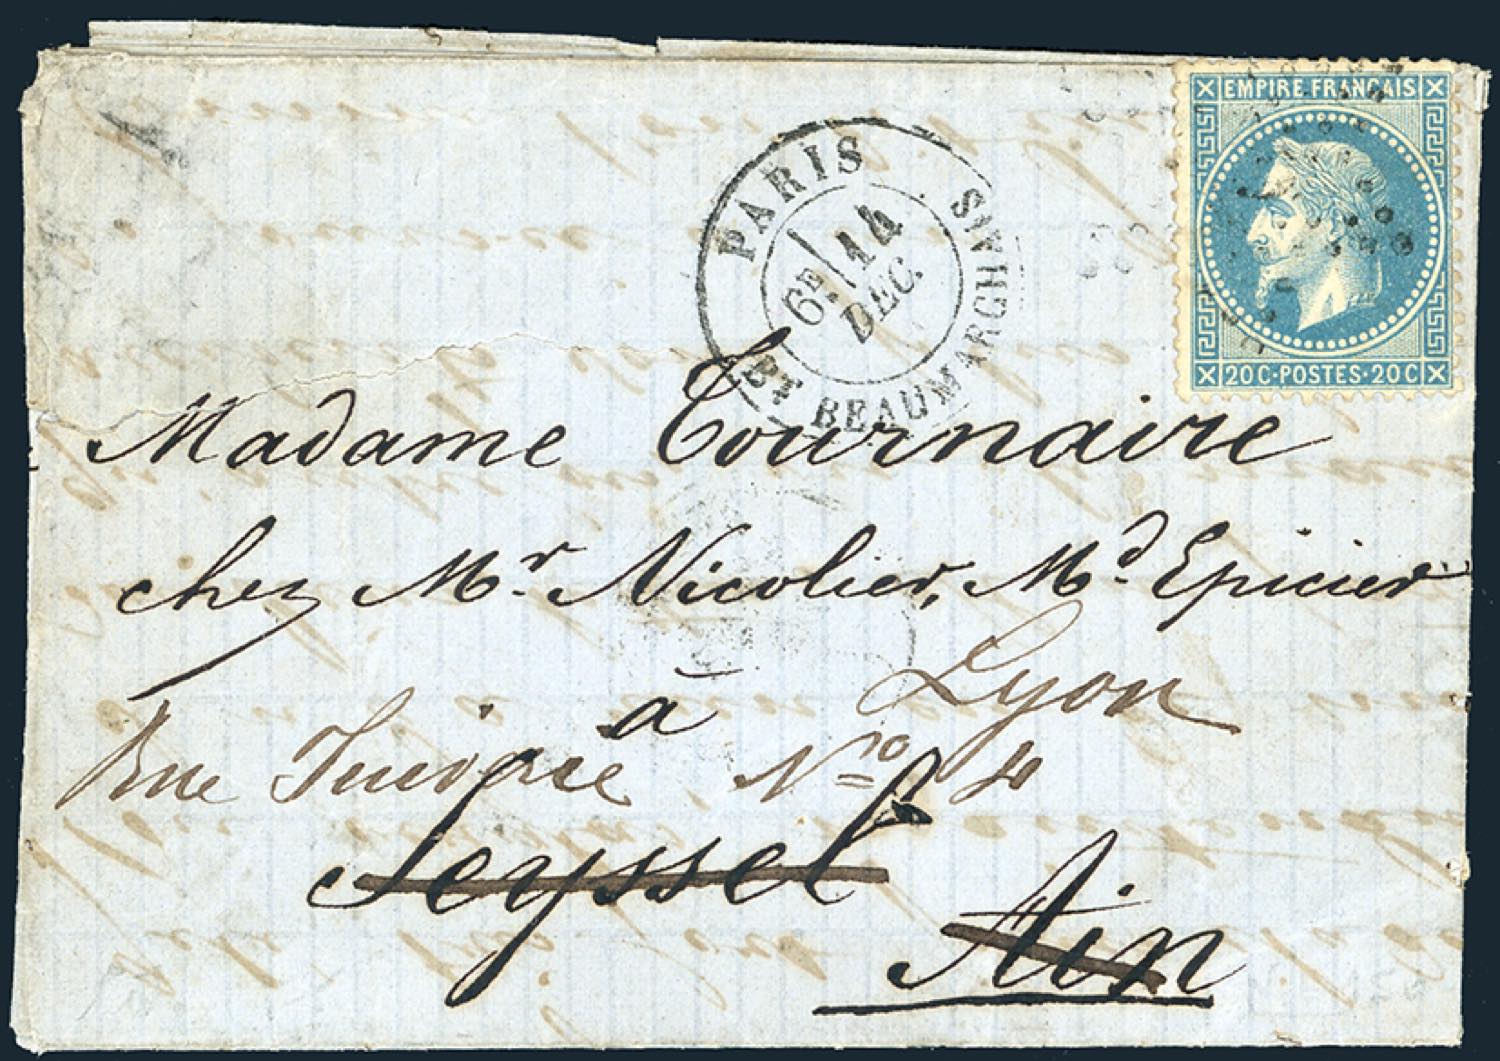 EMPIRE FRANÇAIS
20 C · POSTES · 20 C
PARIS
6E 14
DEC.
BT BEAUMARCHAIS
Madame Tournaire
chez Mr Nicolier, Md Epicier
à Lyon
Rue No 4
Seyssel
Ain